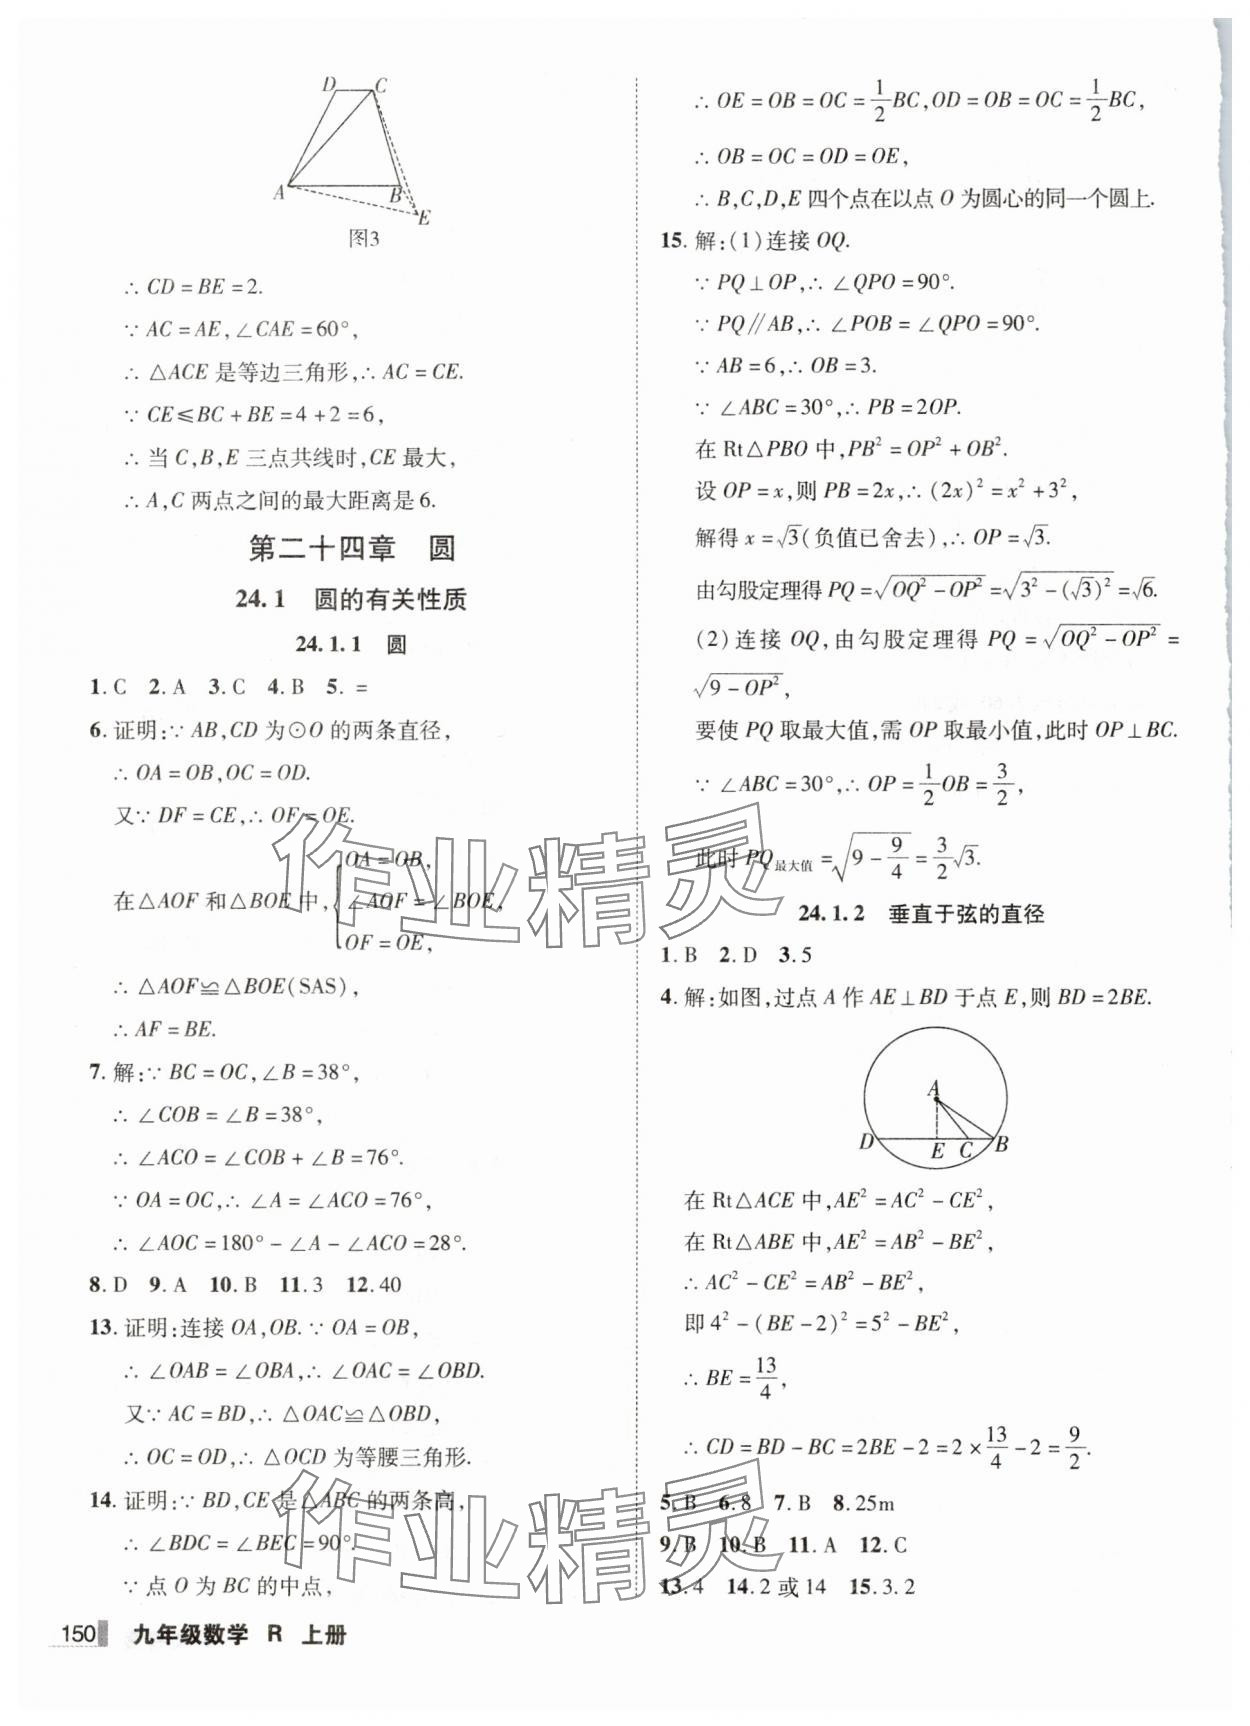 D C
A B E
图3
∴ CD = BE = 2.
∵ AC = AE, ∠CAE = 60°,
∴ △ACE 是等边三角形, ∴ AC = CE.
∵ CE ≤ BC + BE = 4 + 2 = 6,
∴ 当 C, B, E 三点共线时, CE 最大,
∴ A, C 两点之间的最大距离是 6.
第二十四章 圆
24.1 圆的有关性质
24.1.1 圆
1. C 2. A 3. C 4. B 5. =
6. 证明: ∵ AB, CD 为⊙O 的两条直径,
∴ OA = OB, OC = OD.
又∵ DF = CE, ∴ OF = OE.
在△AOF 和△BOE 中, { OA = OB,
∠AOF = ∠BOE,
OF = OE,
∴ △AOF≌△BOE(SAS),
∴ AF = BE.
7. 解: ∵ BC = OC, ∠B = 38°,
∴ ∠COB = ∠B = 38°,
∴ ∠ACO = ∠COB + ∠B = 76°.
∵ OA = OC, ∴ ∠A = ∠ACO = 76°,
∴ ∠AOC = 180° - ∠A - ∠ACO = 28°.
8. D 9. A 10. B 11. 3 12. 40
13. 证明: 连接 OA, OB. ∵ OA = OB,
∴ ∠OAB = ∠OBA, ∴ ∠OAC = ∠OBD.
又∵ AC = BD, ∴ △OAC≌△OBD,
∴ OC = OD, ∴ △OCD 为等腰三角形.
14. 证明: ∵ BD, CE 是△ABC 的两条高,
∴ ∠BDC = ∠BEC = 90°.
∵ 点 O 为 BC 的中点,
∴ OE = OB = OC = 1/2 BC, OD = OB = OC = 1/2 BC,
∴ OB = OC = OD = OE,
∴ B, C, D, E 四个点在以点 O 为圆心的同一个圆上.
15. 解: (1) 连接 OQ.
∵ PQ⊥OP, ∴ ∠QPO = 90°.
∵ PQ∥AB, ∴ ∠POB = ∠QPO = 90°.
∵ AB = 6, ∴ OB = 3.
∵ ∠ABC = 30°, ∴ PB = 2OP.
在 Rt△PBO 中, PB² = OP² + OB².
设 OP = x, 则 PB = 2x, ∴ (2x)² = x² + 3²,
解得 x = √3(负值已舍去), ∴ OP = √3.
由勾股定理得 PQ = √(OQ² - OP²) = √(3² - (√3)²) = √6.
(2) 连接 OQ, 由勾股定理得 PQ = √(OQ² - OP²) =
√(9 - OP²),
要使 PQ 取最大值, 需 OP 取最小值, 此时 OP⊥BC.
∵ ∠ABC = 30°, ∴ OP = 1/2 OB = 3/2,
此时 PQ最大值 = √(9 - 9/4) = 3/2 √3.
24.1.2 垂直于弦的直径
1. B 2. D 3. 5
4. 解: 如图, 过点 A 作 AE⊥BD 于点 E, 则 BD = 2BE.
A
D E C B
在 Rt△ACE 中, AE² = AC² - CE²,
在 Rt△ABE 中, AE² = AB² - BE²,
∴ AC² - CE² = AB² - BE²,
即 4² - (BE - 2)² = 5² - BE²,
∴ BE = 13/4,
∴ CD = BD - BC = 2BE - 2 = 2 × 13/4 - 2 = 9/2.
5. B 6. 8 7. B 8. 25m
9. B 10. B 11. A 12. C
13. 4 14. 2 或 14 15. 3. 2
150 九年级数学 R 上册
作业精灵
作业精灵